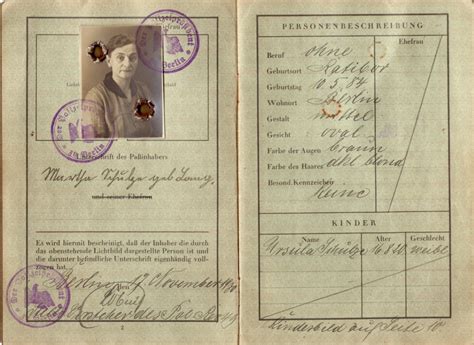 Der Polizeipräsident
in Berlin
Unterschrift des Paßinhabers
Martha Schulze geb.
und seiner Ehefrau
Es wird hiermit bescheinigt, daß der Inhaber die durch
das obenstehende Lichtbild dargestellte Person ist und
die darunter befindliche Unterschrift eigenhändig voll-
zogen hat.
Berlin, November
2
PERSONENBESCHREIBUNG
Ehefrau
Beruf ohne
Geburtsort Ratibor
Geburtstag 5. 84
Wohnort Berlin
Gestalt mittel
Gesicht oval
Farbe der Augen braun
Farbe des Haares dkl. blond
Besond. Kennzeichen keine
KINDER
Name Alter Geschlecht
Ursula Schulze weibl.
Kinderbild auf Seite 10
3